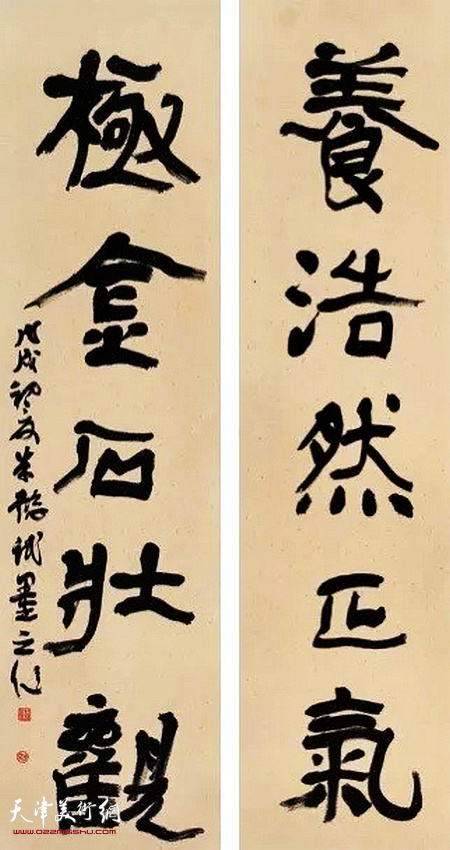 養浩然正氣
極金石壯觀
戊戌初夏朱懿試墨之作
天津美術網
www.022meishu.com